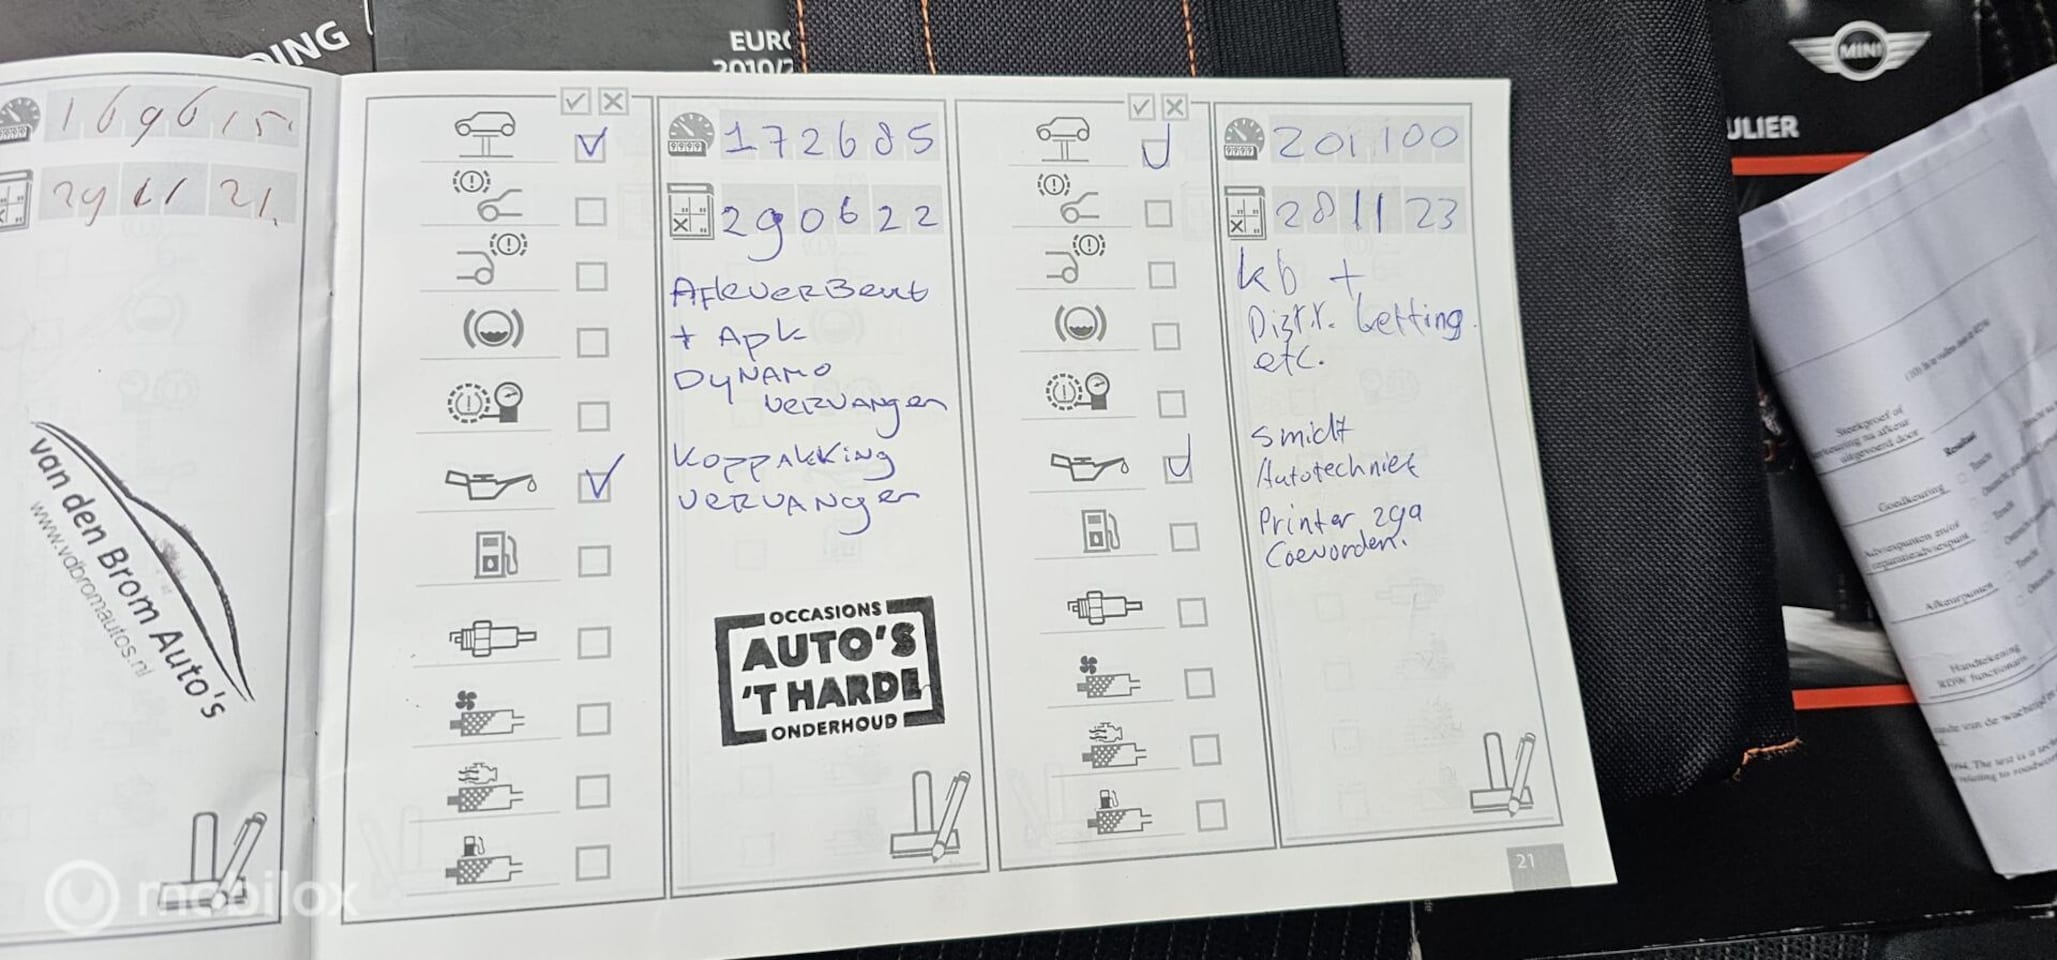 DING
EURO
2010/2
MINI
ULIER
169615
29 11 21
van den Brom Auto's
www.vdbromautos.nl
172685
290622
AFleverBeurt
+ Apk
DyNAMO
vervangen
Koppakking
vervangen
OCCASIONS
AUTO'S
'T HARDE
ONDERHOUD
201100
281123
kb +
Distr. ketting.
etc.
Smidt
Autotechniek
Printer 29a
Coevorden.
21
Steekproef of
herkeuring na afkeur
uitgevoerd door
Goedkeuring
Adviespunten en/of
reparatieadviespunt
Afkeurpunten
Handtekening
RDW functionaris
mobilox